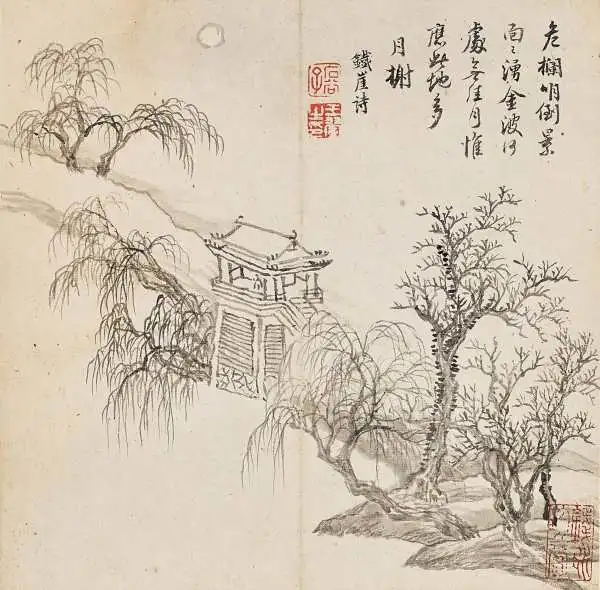 危欄明倒景
面〻湧金波何
處無佳月惟
應此地多
月榭
鐵崖詩